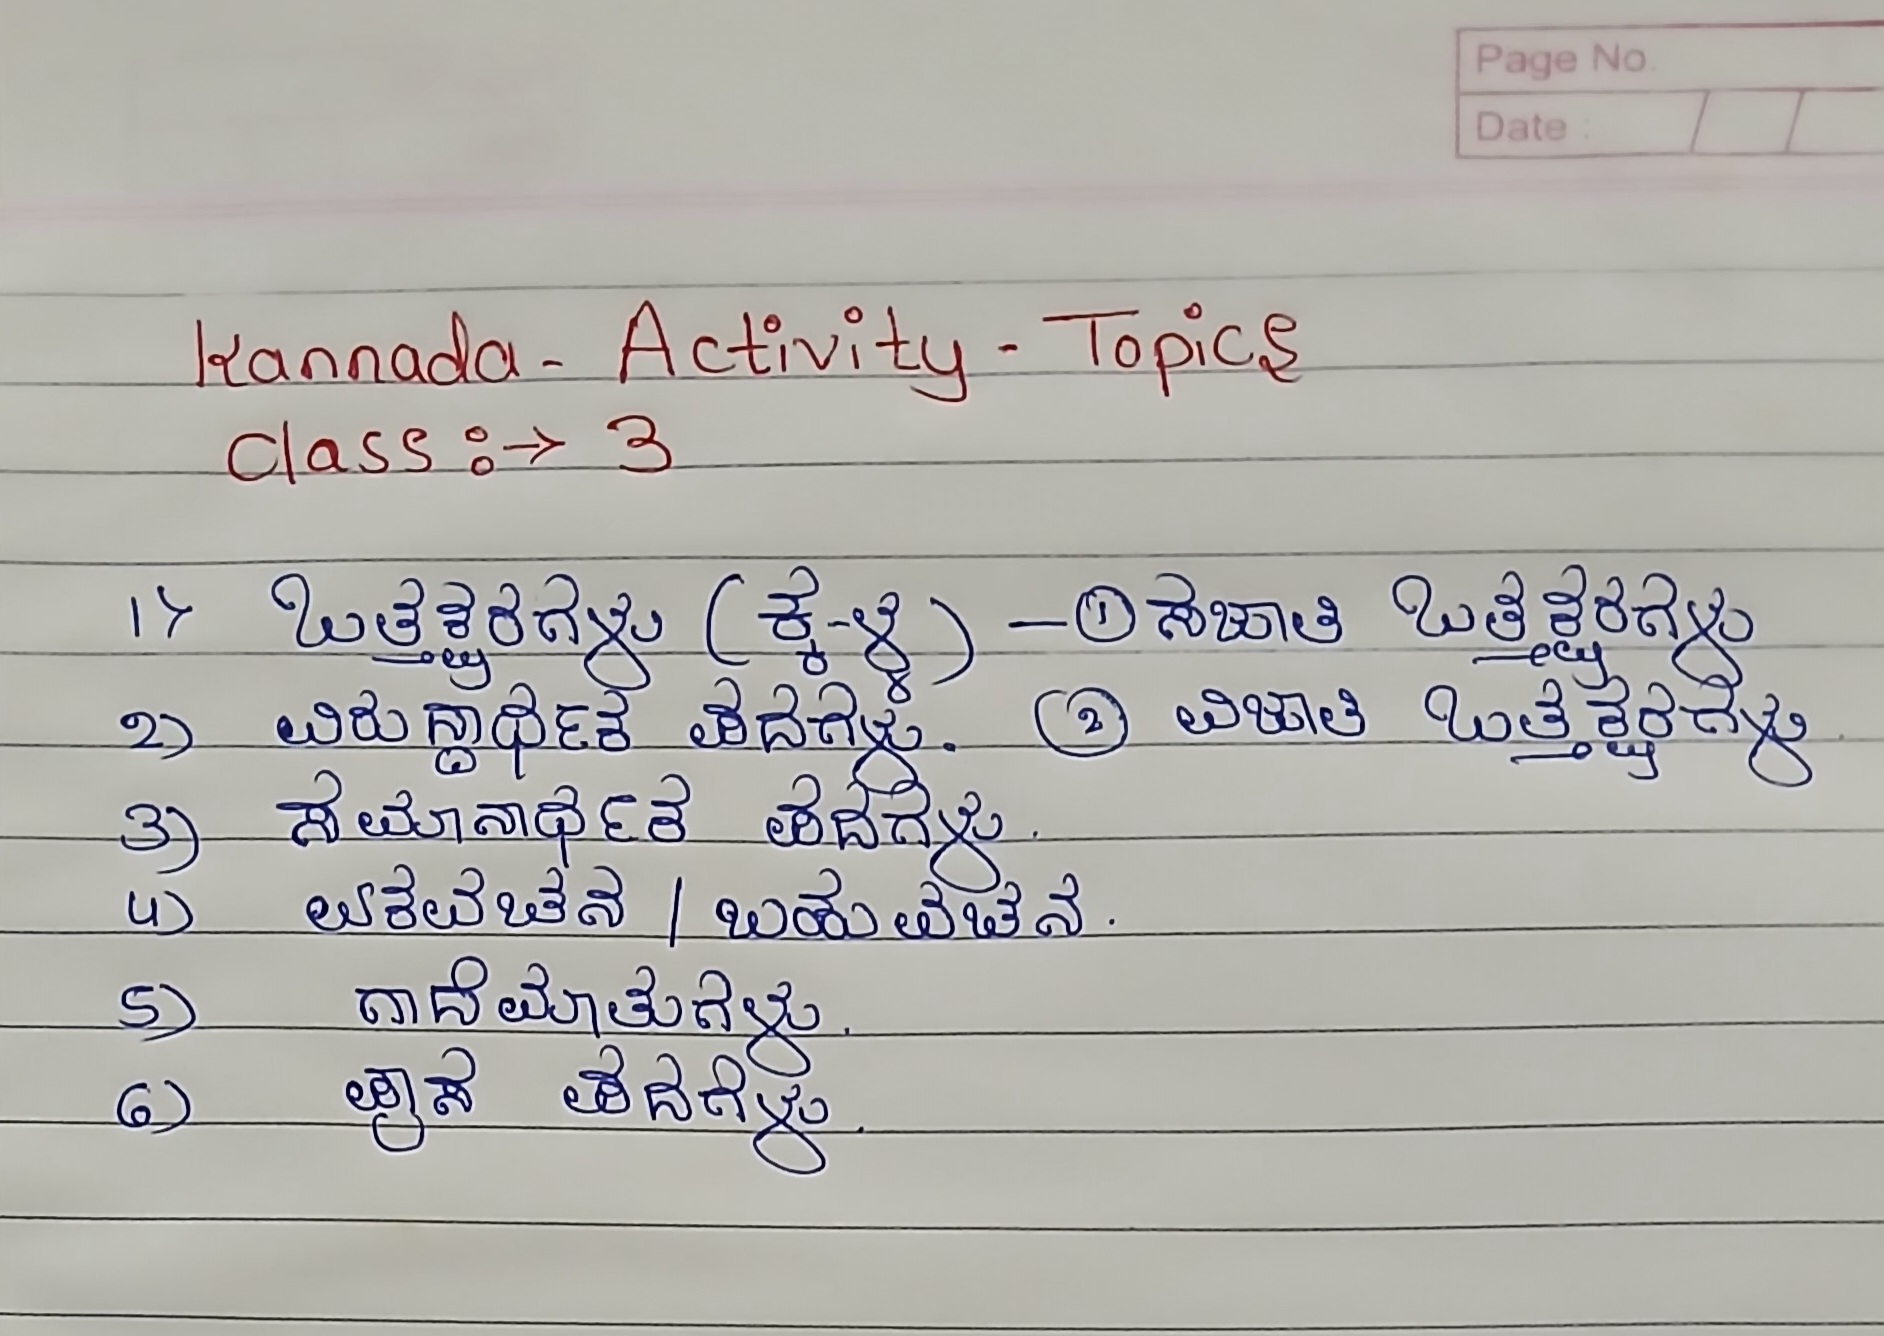 Page No.
Date :
Kannada - Activity - Topics
Class :→ 3
1) ಒತ್ತಕ್ಷರಗಳು (ಕ್ಕ-ಳ್ಳ) – ① ಸಜಾತಿ ಒತ್ತಕ್ಷರಗಳು
2) ವಿರುದ್ಧಾರ್ಥಕ ಪದಗಳು. ② ವಿಜಾತಿ ಒತ್ತಕ್ಷರಗಳು.
3) ಸಮಾನಾರ್ಥಕ ಪದಗಳು.
4) ಏಕವಚನ / ಬಹುವಚನ.
5) ಗಾದೆಮಾತುಗಳು.
6) ಪ್ರಾಸ ಪದಗಳು.